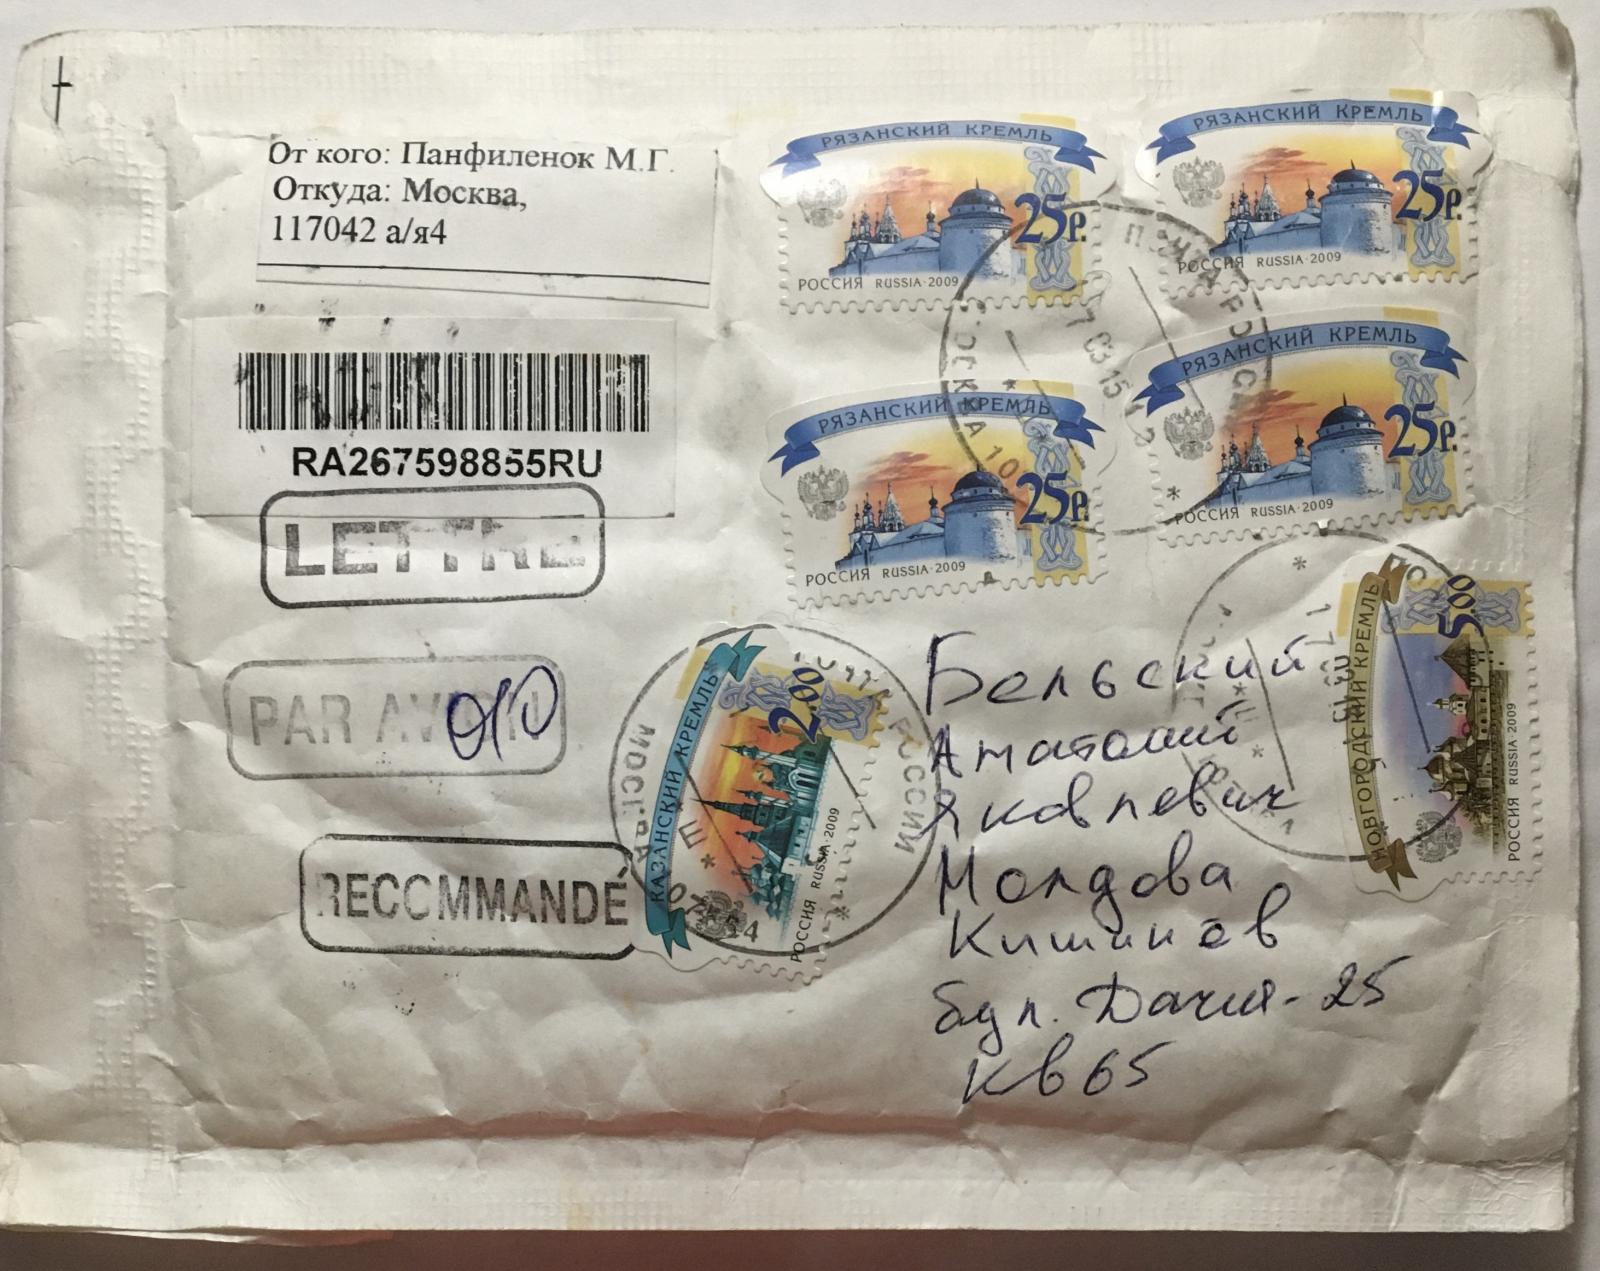 От кого: Панфиленок М.Г.
Откуда: Москва,
117042 а/я4
RA267598855RU
LETTRE
PAR AVION
RECOMMANDÉ
РЯЗАНСКИЙ КРЕМЛЬ
25р.
РОССИЯ RUSSIA·2009
РЯЗАНСКИЙ КРЕМЛЬ
25р.
РОССИЯ RUSSIA·2009
РЯЗАНСКИЙ КРЕМЛЬ
25р.
РОССИЯ RUSSIA·2009
РЯЗАНСКИЙ КРЕМЛЬ
25р.
РОССИЯ RUSSIA·2009
ПОЧТА РОССИИ
МОСКВА
03 15
КАЗАНСКИЙ КРЕМЛЬ
2.00
РОССИЯ RUSSIA·2009
ПОЧТА РОССИИ
МОСКВА
НОВГОРОДСКИЙ КРЕМЛЬ
5.00
РОССИЯ RUSSIA 2009
Бельский
Анатолий
Яковлевич
Молдова
Кишинёв
бул. Дачия-25
кв 65